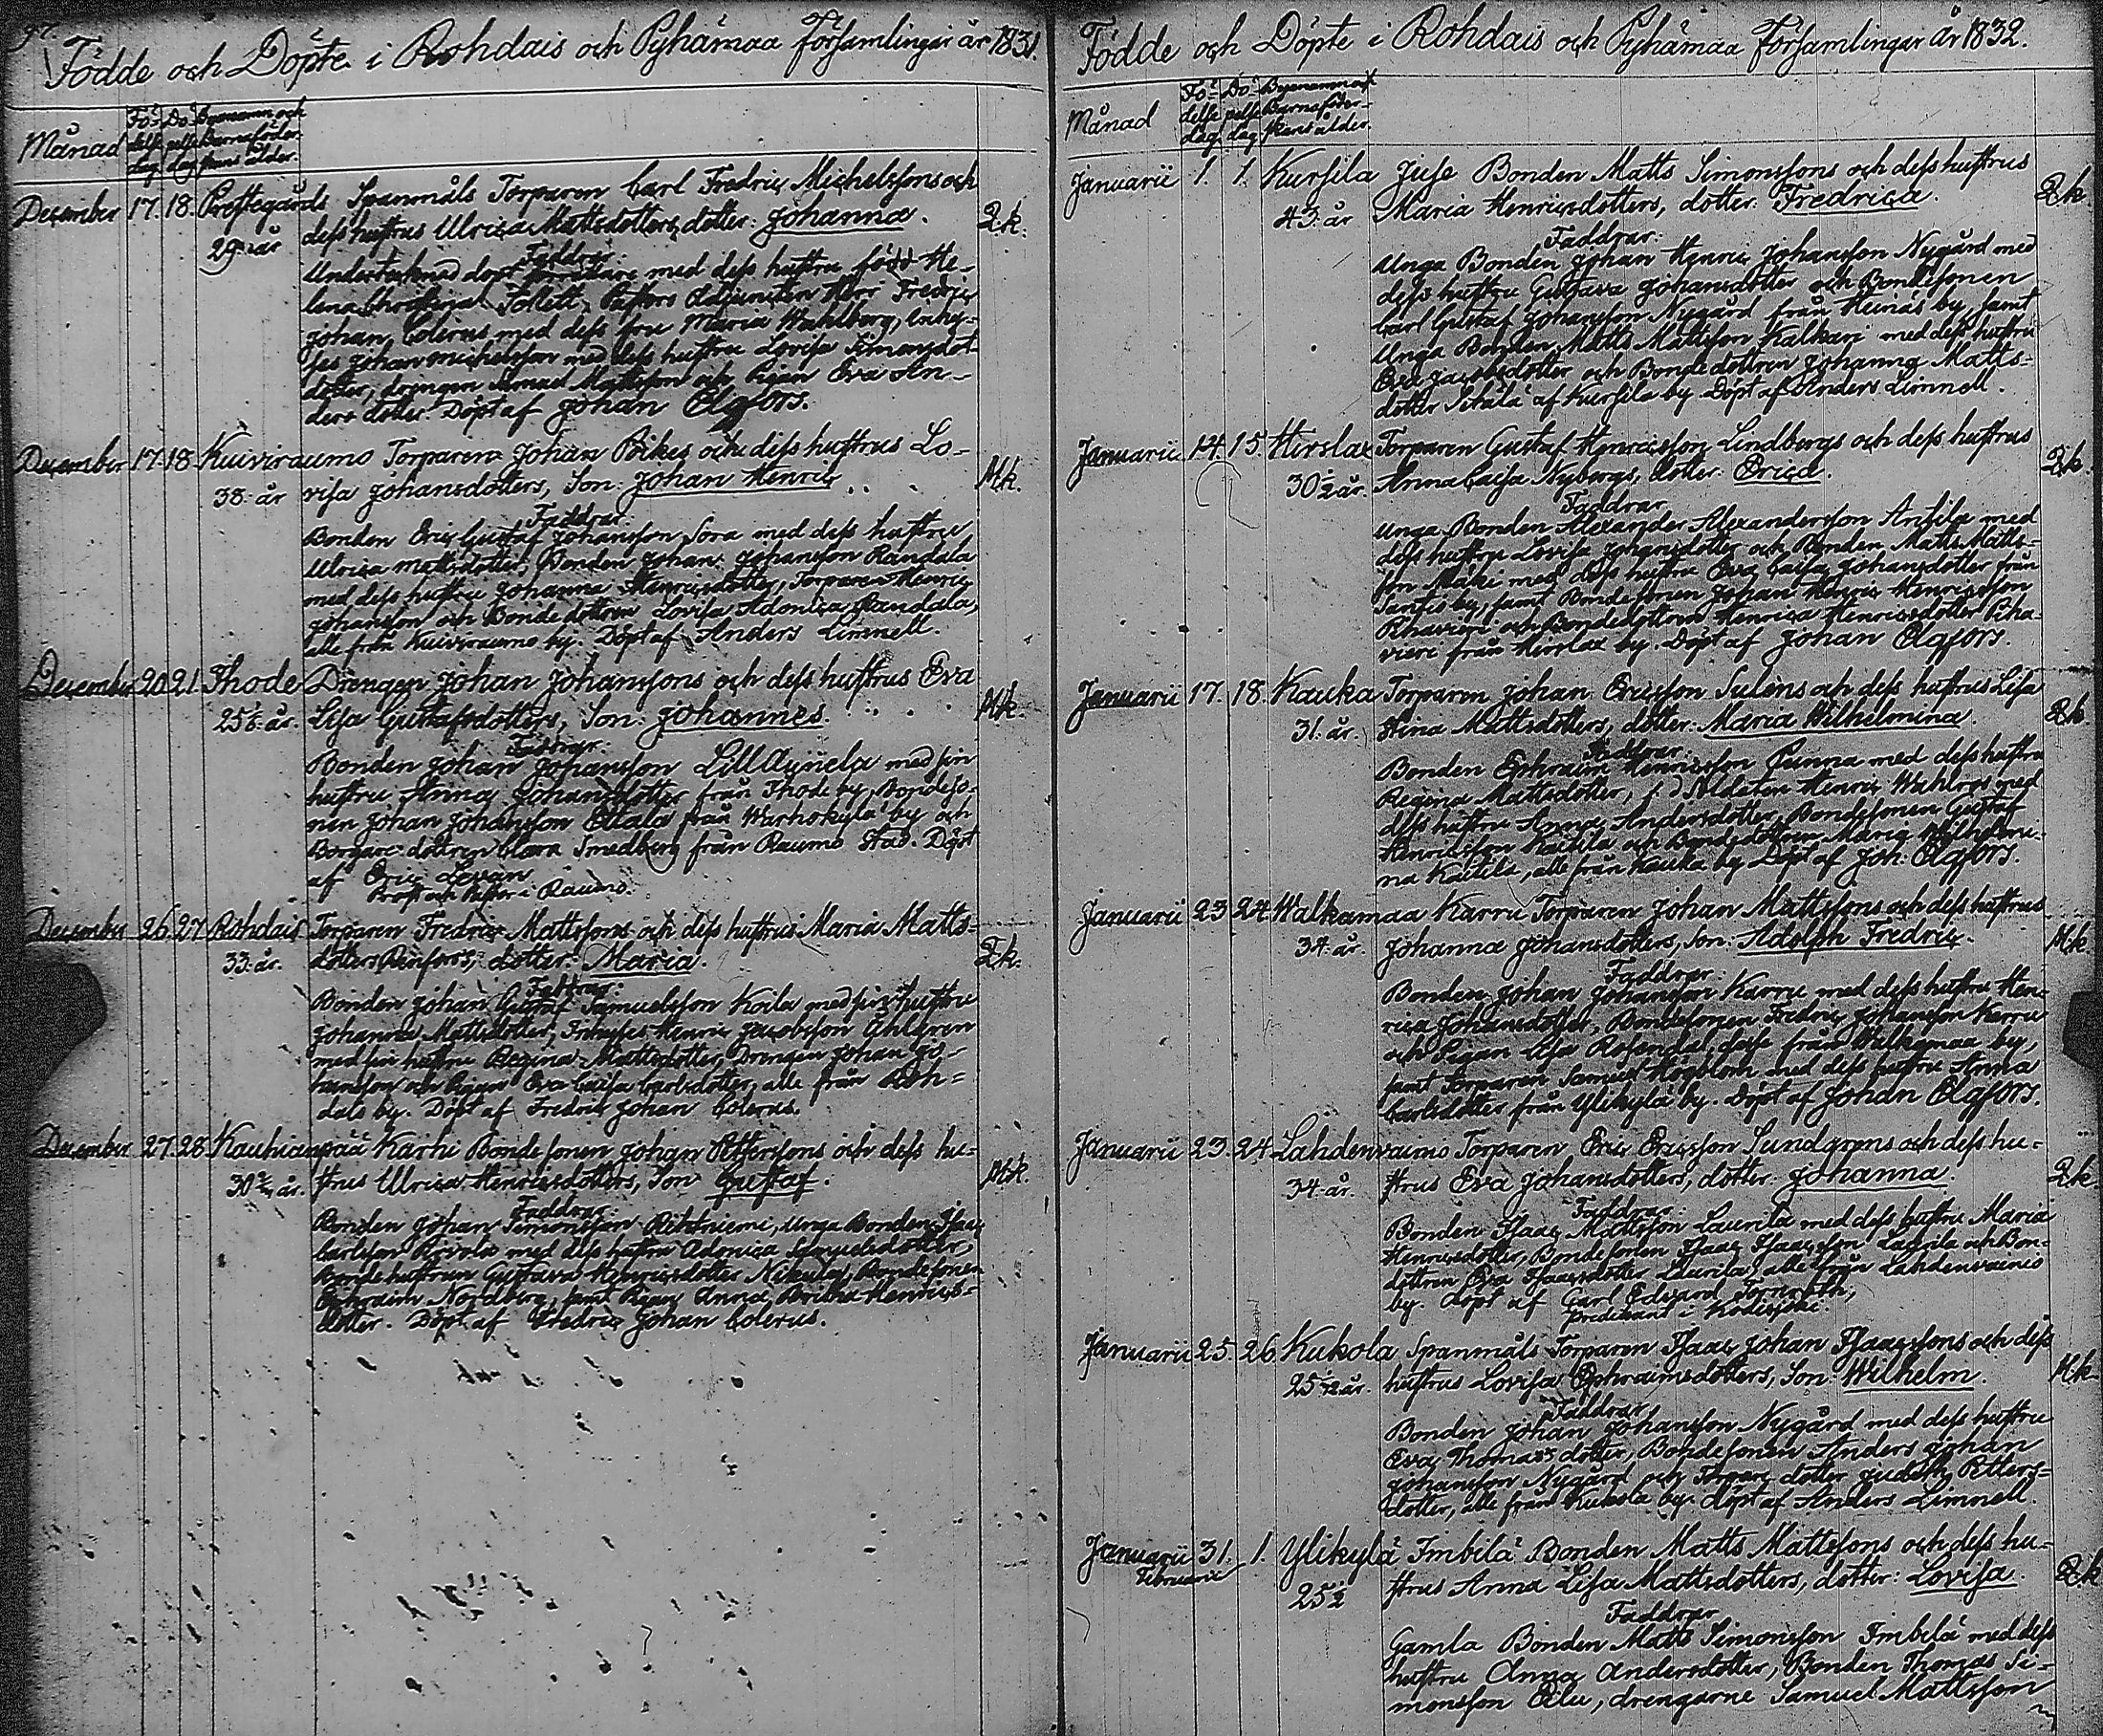 97.
Födde och Döpte i Rohdais och Pyhämaa församlingar år 1831.
Månad Fö- Dö- Byanamn och
delse pelse Barnaföder-
dag dag skans ålder.
December 17. 18. Prestegårds Spanmåls Torparen Carl Fredric Michelssons och
29. år dess hustrus Ulrica Mattsdotters, dotter: Johanna. Q.k.
Faddrar:
med dess hustru född He-
lena Pastors Adjuncten Herr Fredric
Johan Colerus med dess fru Maria Wahlberg, Inhy-
ses Johan Michelsson med dess hustru Lovisa Simonsdot-
dotter, drengen Mattsson och Pigan Eva An-
ders dotter. Döpt af Johan Elgfors.
December 17. 18. Kuiviraumo Torparen Johan Bikes och dess hustrus Lo-
38. år visa Johansdotters, Son: Johan Henric M.k.
Faddrar.
Bonden Eric Gustaf Johansson Sora med dess hustru
Ulrica Mattsdotter, Bonden Johan Johansson Randala
med dess hustru Johanna Henricsdotter, Torparen Henric
Johansson och Bondedottren Lovisa Adonica Randala,
alle från Kuiviraumo by. Döpt af Anders Limnell.
December 20. 21. Thode Drengen Johan Johanssons och dess hustrus Eva
25 år. Lisa Gustafsdotters, Son: Johannes. M.k.
Faddrar:
Bonden Johan Johansson Lill Äijuela med sin
hustru Anna Johansdotter från Thode by, Bondeso-
nen Johan Johansson Ellala från Warhokylä by och
Borgare dottren Clara Smedberg från Raumo Stad. Döpt
af Eric Levan
Prost och Pastor i Raumo.
December 26. 27. Rohdais Torparen Fredric Mattssons och dess hustrus Maria Matts-
33. år. dotters Renfors, dotter: Maria. Q.k.
Faddrar:
Bonden Johan Gustaf Samuelsson Koila med sin hustru
Johanna Mattsdotter, Inhyses Henric Jacobsson Åhlgren
med sin hustru Regina Mattsdotter, Drengen Johan Jo-
hansson och Pigan Eva Caisa Carlsdotter, alle från Roh-
dais by. Döpt af Fredric Johan Colerus.
December 27. 28. Kauhianpää Karhi Bondesonen Johan Pettersons och dess hu-
30 år. strus Ulrica Henricsdotters, Son Gustaf. M.k.
Faddrar:
Bonden Johan Simonsson Rihtniemi, unga Bonden Isaac
Carlsson Rivola med dess hustru Adonica Samuelsdotter,
Bonde hustrun Gustava Henricsdotter Nikula, Bondesonen
Ephraim Nordberg, samt Pigan Anna Britha Henrics-
dotter. Döpt af Fredric Johan Colerus.
Födde och Döpte i Rohdais och Pyhämaa församlingar år 1832.
Månad Fö- Dö- Byanamn och
delse pelse Barnaföder-
dag dag skans ålder.
Januarii 1. 1. Kursila Juse Bonden Matts Simonssons och dess hustrus
43. år Maria Henricsdotters, dotter: Fredrica. Q.k.
Faddrar:
Unga Bonden Johan Henric Johansson Nygård med
dess hustru Gustava Johansdotter och Bondesonen
Carl Gustaf Johansson Nygård från Heinäs by, samt
Unga Bonden Matts Mattsson Kalkari med dess hustru
Eva Jacobsdotter och Bondedottren Johanna Matts-
dotter Sihila af Kursila by. Döpt af Anders Limnell.
Januarii 14. 15. Hirslax Torparen Gustaf Henricsson Lindbergs och dess hustrus
30 ½ år. Anna Caisa Nybergs, dotter: Erica. Q.k.
Faddrar
Unga Bonden Alexander Alexandersson Ansila med
dess hustru Lovisa Johansdotter och Bonden Matts Matts-
son Mäki med dess hustru Eva Caisa Johansdotter från
Santis by, samt Bondesonen Johan Henric Henricsson
och Bondedottren Henrica Henricsdotter Piha-
vieri från Hirslax by. Döpt af Johan Elgfors.
Januarii 17. 18. Kauka Torparen Johan Ericsson Sulins och dess hustrus Lisa
31. år. Stina Mattsdotters, dotter: Maria Wilhelmina. Q.k.
Faddrar:
Bonden Ephraim Henricsson Punna med dess hustru
Regina Mattsdotter, Soldaten Henric Wahlros med
dess hustru Anna Andersdotter, Bondesonen Gustaf
Henricsson Kaitila och Bondedottren Maria Wilhelmi-
na Kaitila, alle från Kauka by. Döpt af Joh. Elgfors.
Januarii 23. 24. Walkamaa Karru Torparen Johan Mattssons och dess hustrus
34. år. Johanna Johansdotters, Son: Adolph Fredric. M.k.
Faddrar:
Bonden Johan Johansson Karru med dess hustru Hen-
rica Johansdotter, Bondesonen Fredric Johansson Karru
och Pigan Lisa Rosendal, desse från Walkamaa by,
samt Torparen Samuel Högblom med dess hustru Anna
Carlsdotter från Ylikylä by. Döpt af Johan Elgfors.
Januarii 23. 24. Lahdenvainio Torparen Eric Ericsson Sundgrens och dess hu-
34. år. strus Eva Johansdotters, dotter: Johanna. Q.k.
Faddrar:
Bonden Isaac Mattsson Laurila med dess hustru Maria
Henricsdotter, Bondesonen Isaac Isaacsson Laurila och Bon-
dottren Eva Isaacsdotter Laurila, alle från Lahdenvainio
by. Döpt af Carl Edvard Törnroth,
Predikant i Kodisjoki.
Januarii 25. 26. Kukola Spanmåls Torparen Isaac Johan Isaacssons och dess
25 ½ år. hustrus Lovisa Ephraimsdotters, Son: Wilhelm. M.k.
Faddrar
Bonden Johan Johansson Nygård med dess hustru
Eva Thomasdotter, Bondesonen Anders Johan
Johansson Nygård och Torpare dotter Judith Petters-
dotter, alle från Kukola by. Döpt af Anders Limnell.
Januarii 31. 1. Ylikylä Imbilä Bonden Matts Mattssons och dess hu-
Februarii
25 ½ strus Anna Lisa Mattsdotters, dotter: Lovisa. Q.k.
Faddrar
Gamla Bonden Matts Simonsson Imbilä med dess
hustru Anna Andersdotter, Bonden Thomas Si-
monsson Eilu, drengarne Samuel Mattsson